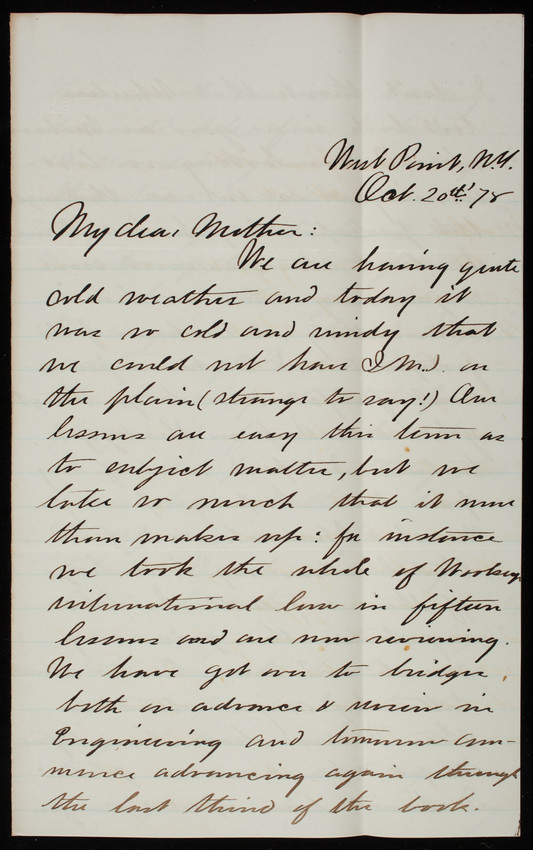 West Point, N.Y.
Oct. 20th' 78
My dear Mother:
We are having quite
cold weather and today it
was so cold and windy that
we could not have I.M.J. on
the plain (strange to say!) Our
lessons are easy this term as
to subject matter, but we
take so much that it more
than makes up: for instance
we took the whole of Woolsey
international law in fifteen
lessons and are now reviewing.
We have got over to bridges,
both on advance & review in
Engineering and tomorrow com-
mence advancing again through
the last third of the book.